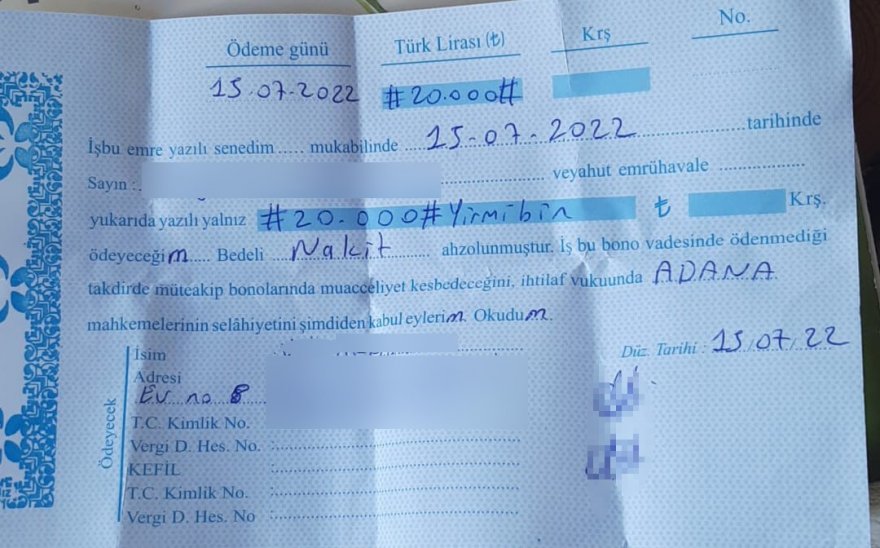 Ödeme günü Türk Lirası (₺) Krş No.
15.07.2022 #20.000#
İşbu emre yazılı senedim ..... mukabilinde ...15-07-2022... tarihinde
Sayın : veyahut emrühavale
yukarıda yazılı yalnız #20.000#Yirmibin ₺ Krş.
ödeyeceğim.... Bedeli ...Nakit... ahzolunmuştur. İş bu bono vadesinde ödenmediği
takdirde müteakip bonolarında muacceliyet kesbedeceğini, ihtilaf vukuunda ADANA
mahkemelerinin selâhiyetini şimdiden kabul eylerim. Okudum.
Düz. Tarihi : 15/07/22
Ödeyecek
İsim
Adresi
Ev no 8
T.C. Kimlik No.
Vergi D. Hes. No. :
KEFİL :
T.C. Kimlik No. :
Vergi D. Hes. No :